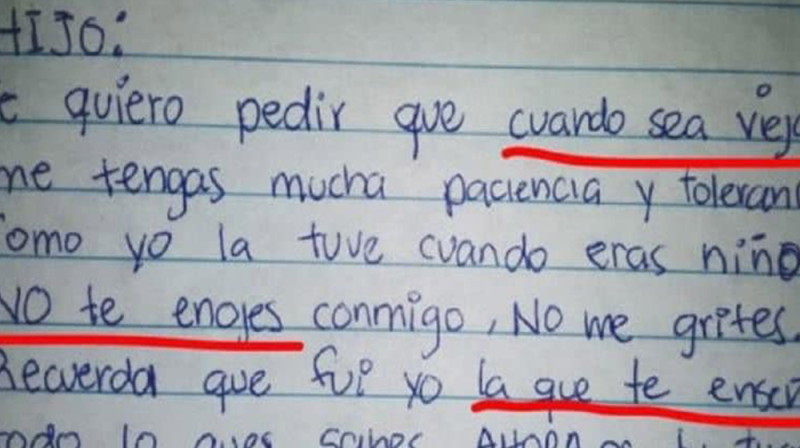 HIJO:
quiero pedir que cuando sea
me tengas mucha paciencia y
como yo la tuve cuando eras niño
NO te enojes conmigo, NO me grites.
Recuerda que fui yo la que te